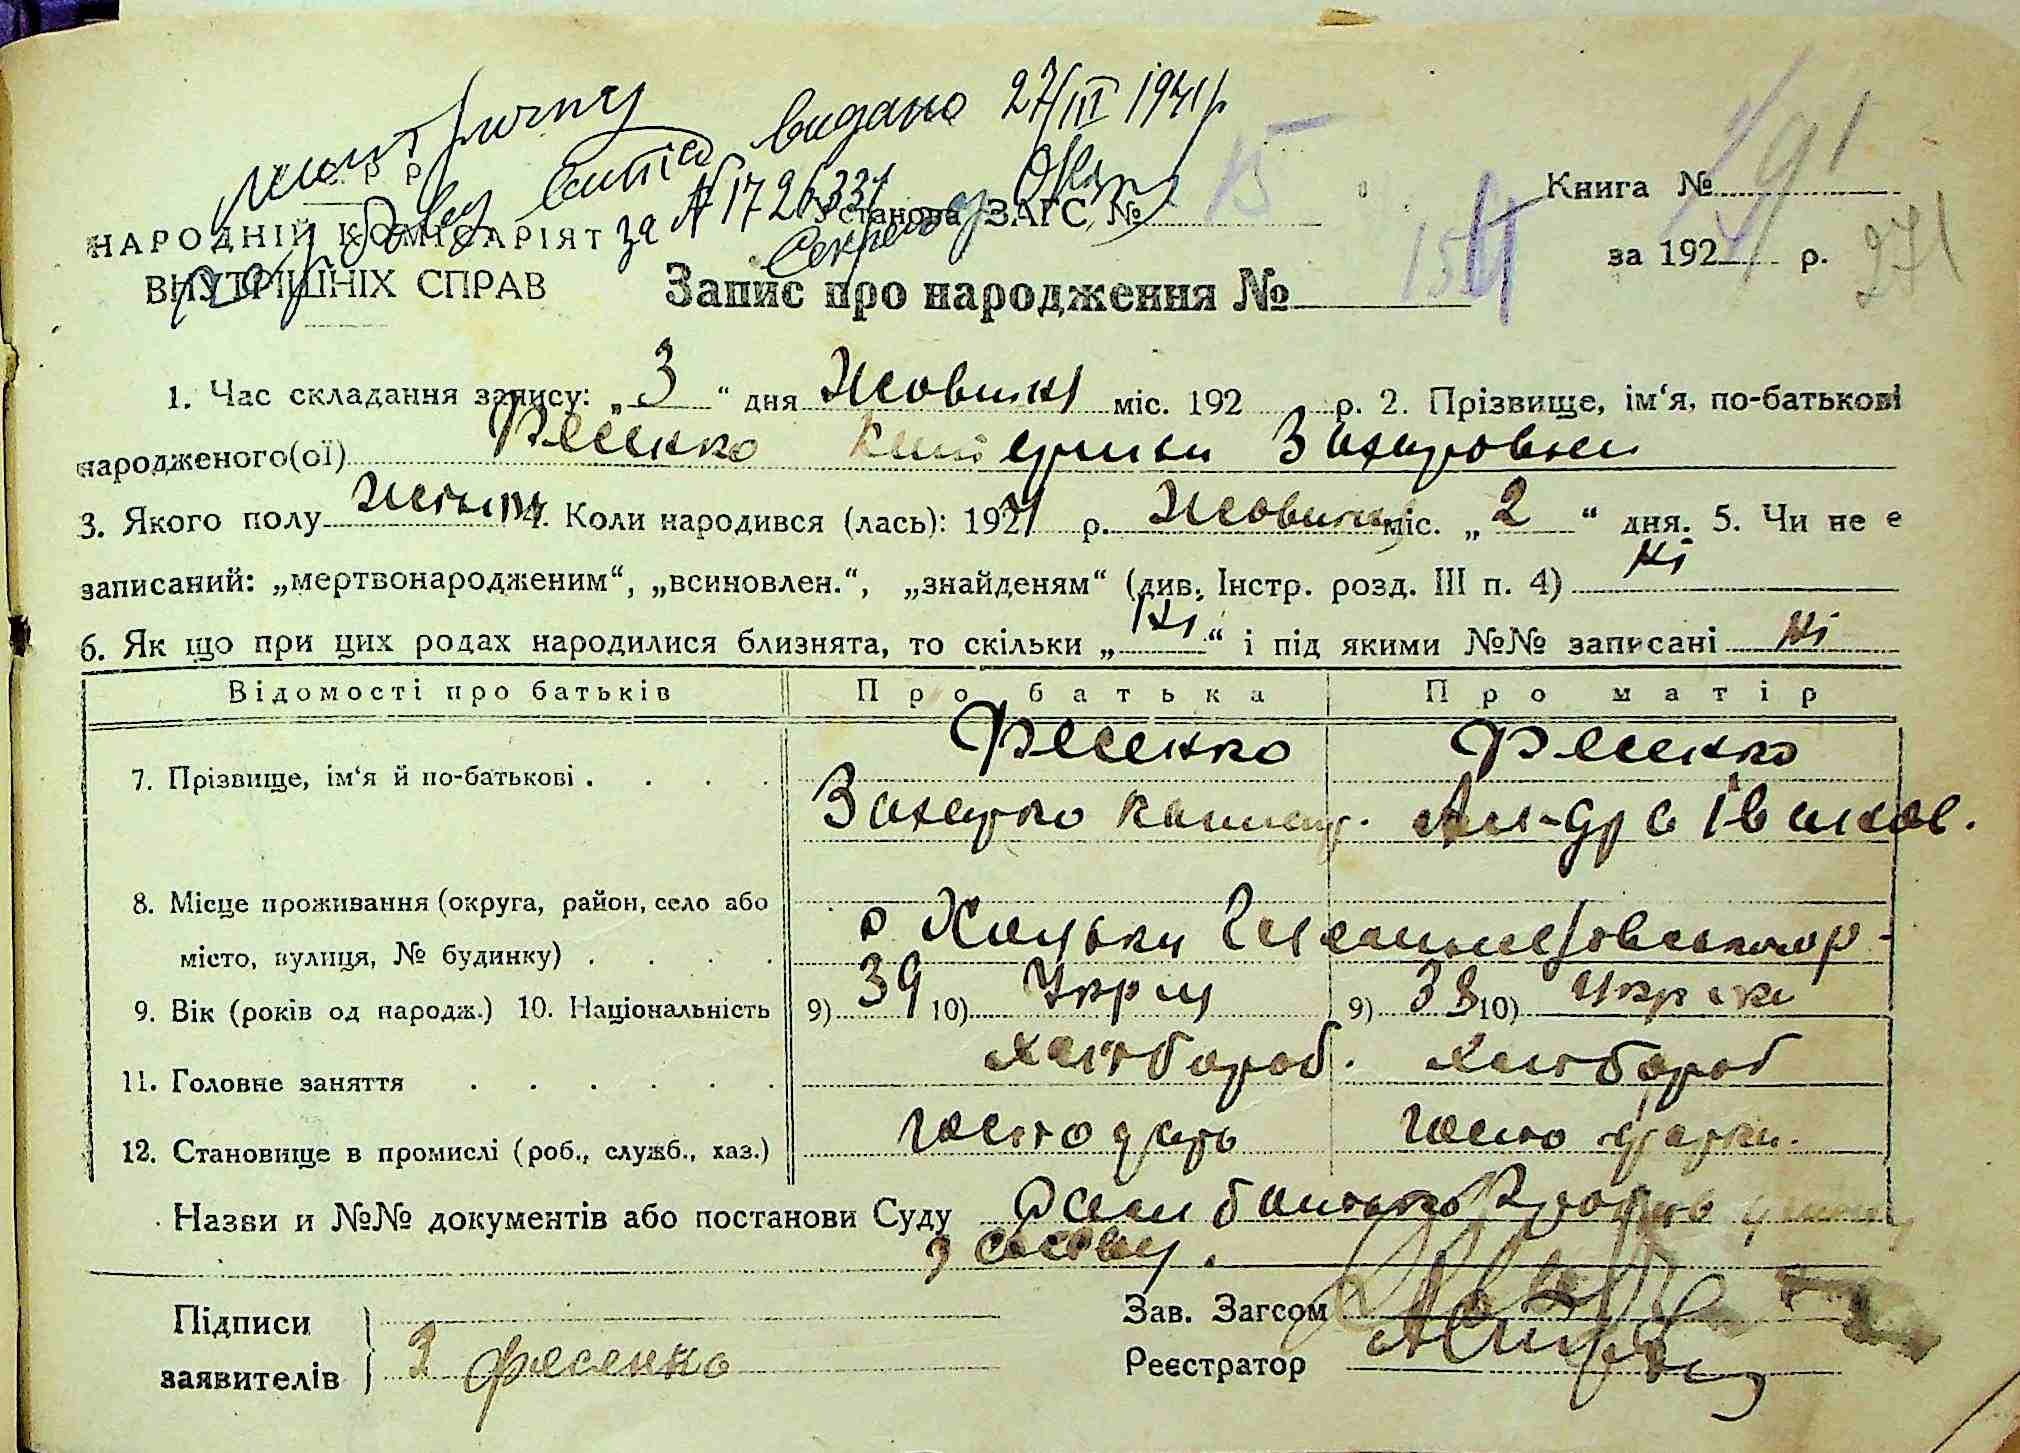 метричну
видано 27/III 1941р
Р Р
НАРОДНІЙ КОМІСАРІЯТ
за № 1726331
Секретар
Установа ЗАГС, № 15
Книга №
ВНУТРІШНІХ СПРАВ
Запис про народження № 154
за 192 р.
271
1. Час складання запису: „ 3 “ дня Жовтня міс. 192 р. 2. Прізвище, ім‘я, по-батькові
народженого(ої) Фесенко Катерина Захаровна
3. Якого полу Жіноч 4. Коли народився (лась): 192 р. Жовтня міс. „ 2 “ дня. 5. Чи не є
записаний: „мертвонародженим“, „всиновлен.“, „знайденям“ (див. Інстр. розд. III п. 4) Ні
6. Як що при цих родах народилися близнята, то скільки „ Ні “ і під якими №№ записані Ні
Відомості про батьків Про батька Про матір
7. Прізвище, ім‘я й по-батькові . . . . Фесенко Фесенко
Захарко Ал-дра Іванов.
8. Місце проживання (округа, район, село або
місто, вулиця, № будинку) . . . .
9. Вік (років од народж.) 10. Національність 9) 39 10) Укр 9) 38 10) Укр
11. Головне заняття . . . . . . хлібороб. хлібороб
12. Становище в промислі (роб., служб., хаз.) господарь господарки.
Назви и №№ документів або постанови Суду
з слову.
Підписи
Зав. Загсом
заявителів З Фесенко
Реєстратор